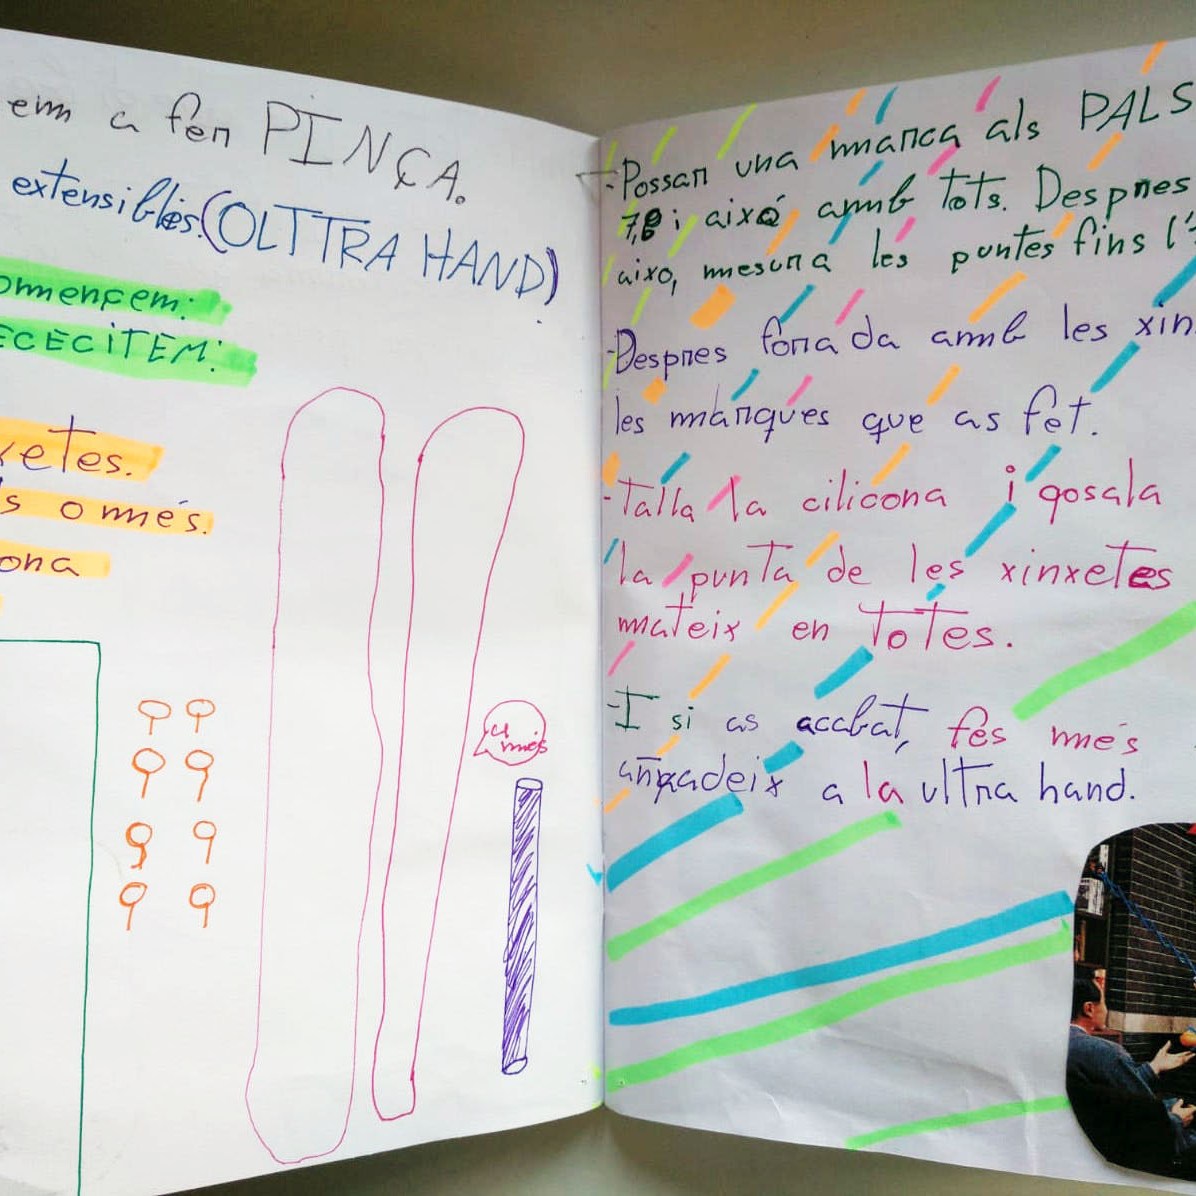 em a fer PINÇA.
extensibles.(OLTTRA HAND)
omencem:
ECECITEM:
xetes.
s o més.
ona
4 més
-Possar una marca als PALS
7,8 i aixó amb tots. Despres
aixo, mesura les puntes fins l'
-Despres forada amb les xin
les marques que as fet.
-Talla la cilicona i posala
la punta de les xinxetes
mateix en totes.
-I si as accbat, fes més
añadeix a la ultra hand.